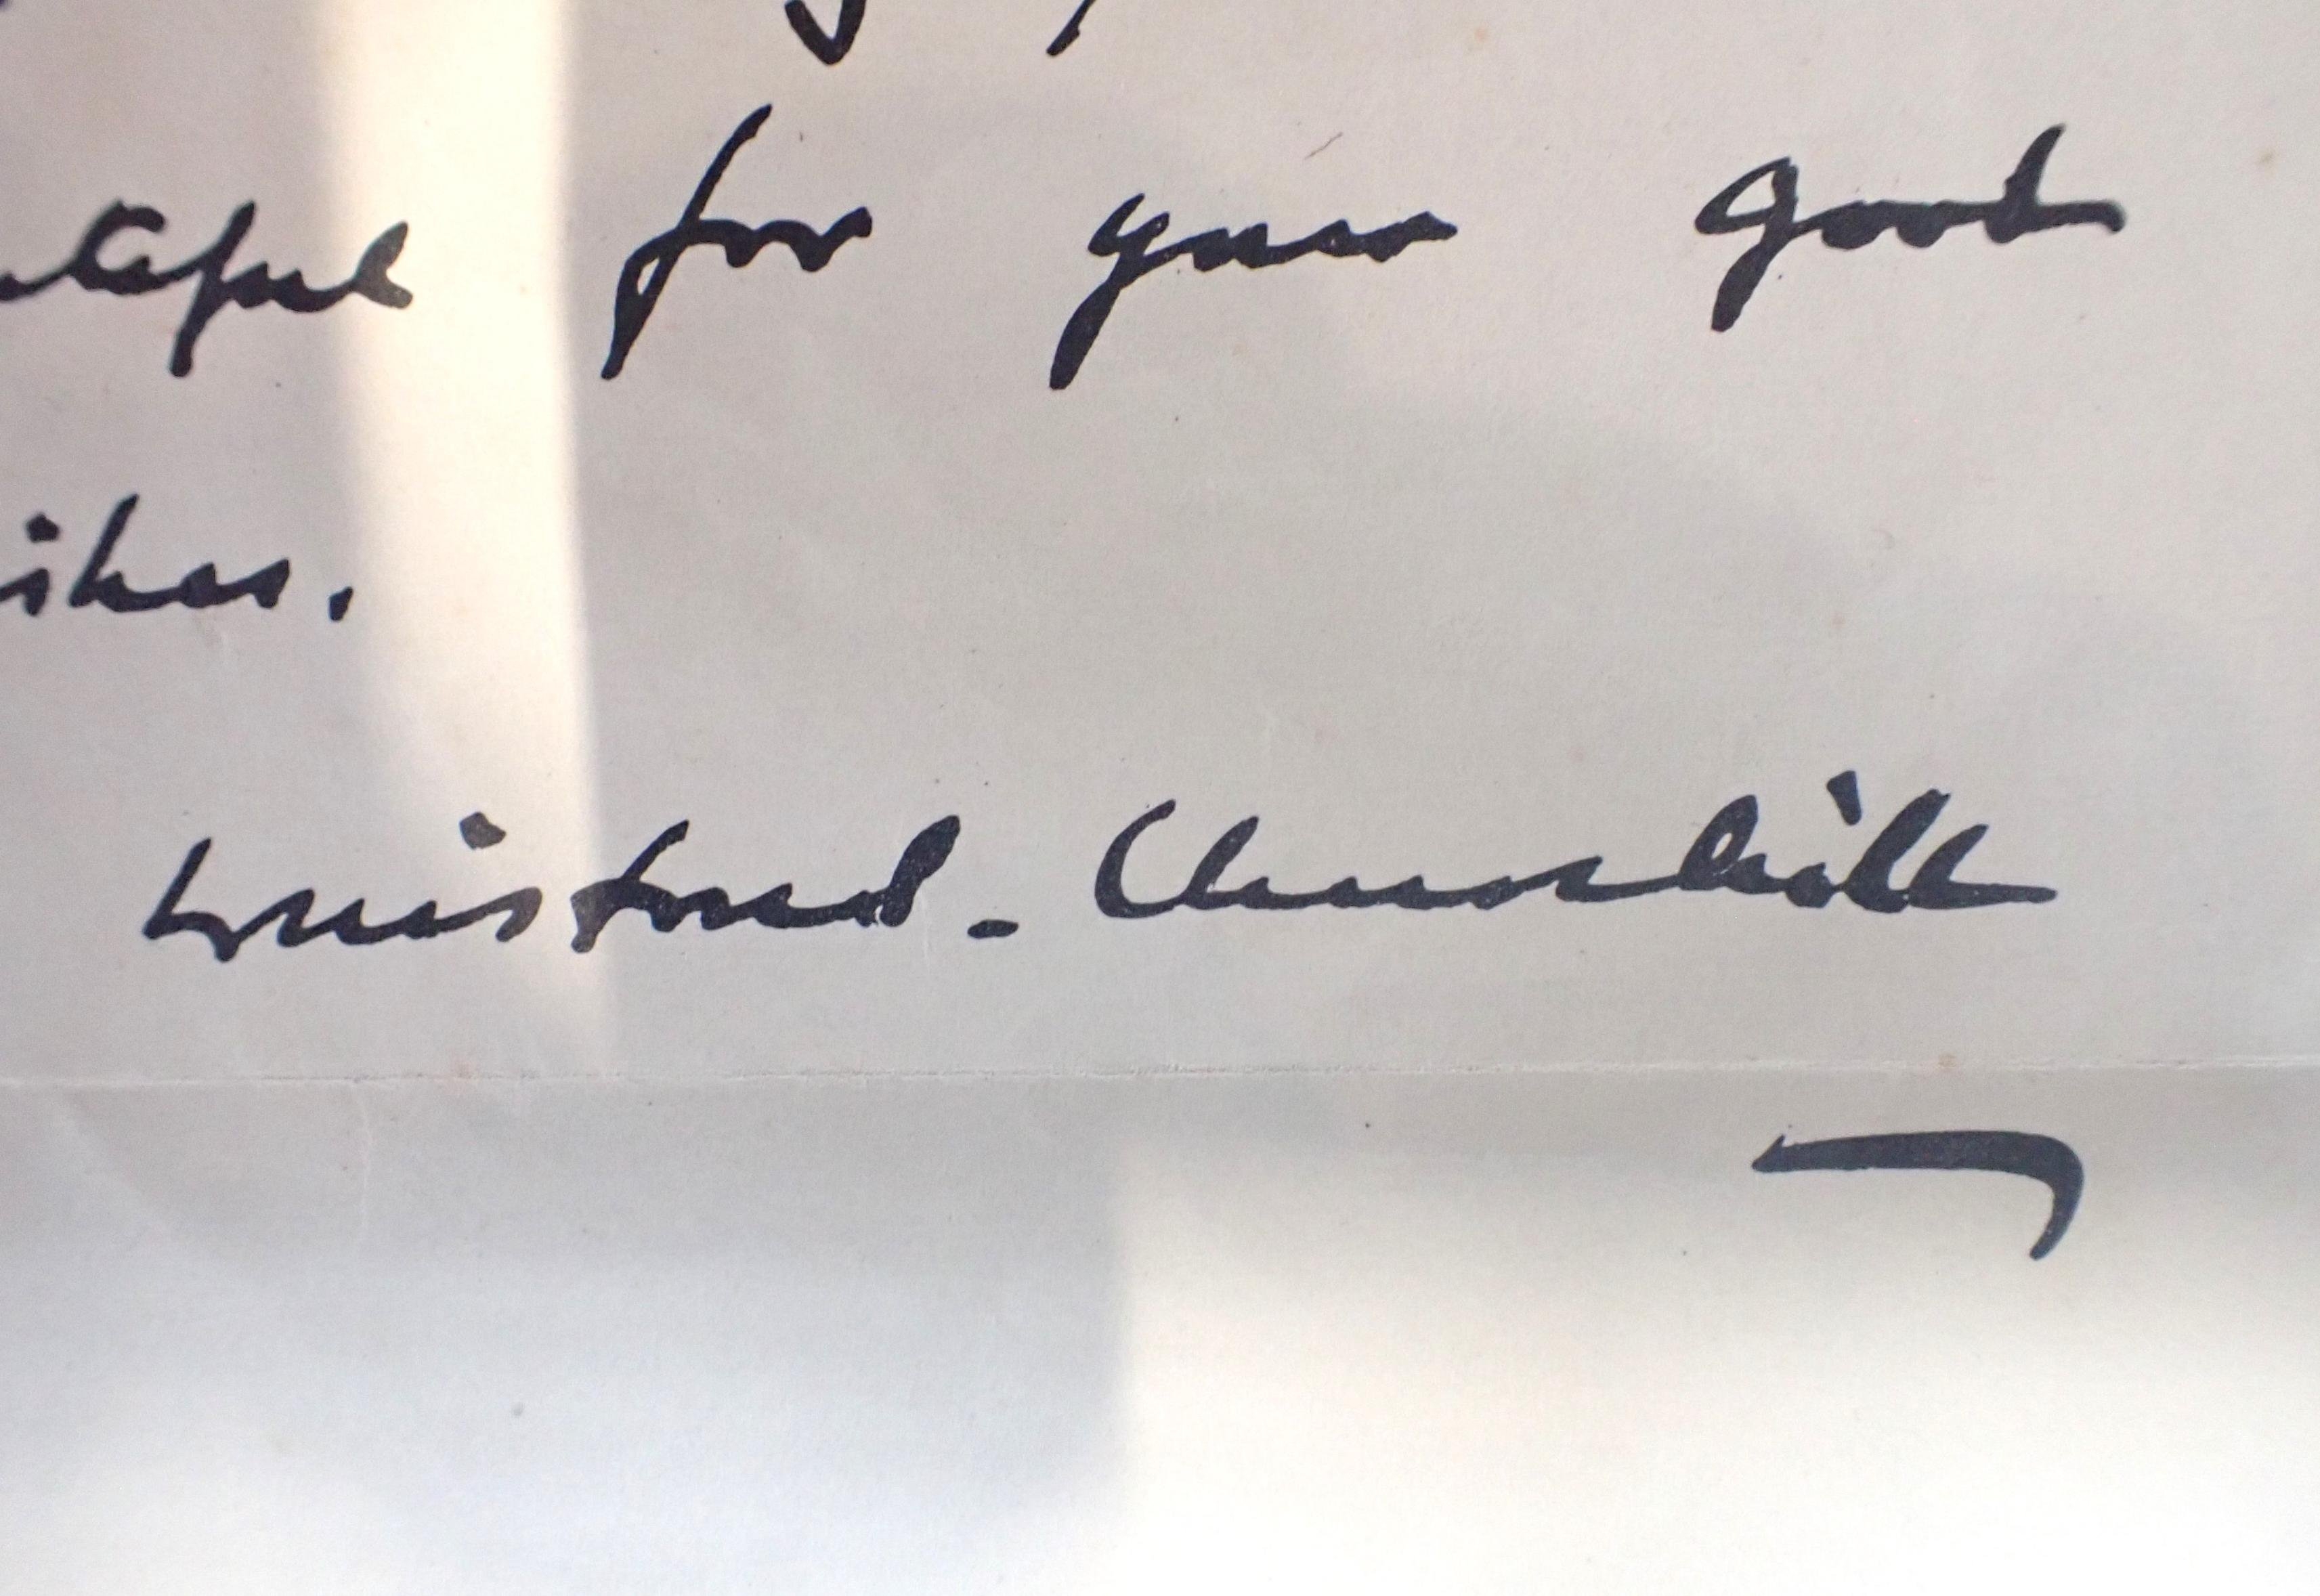 ateful for your good
ishes.
Winston S. Churchill